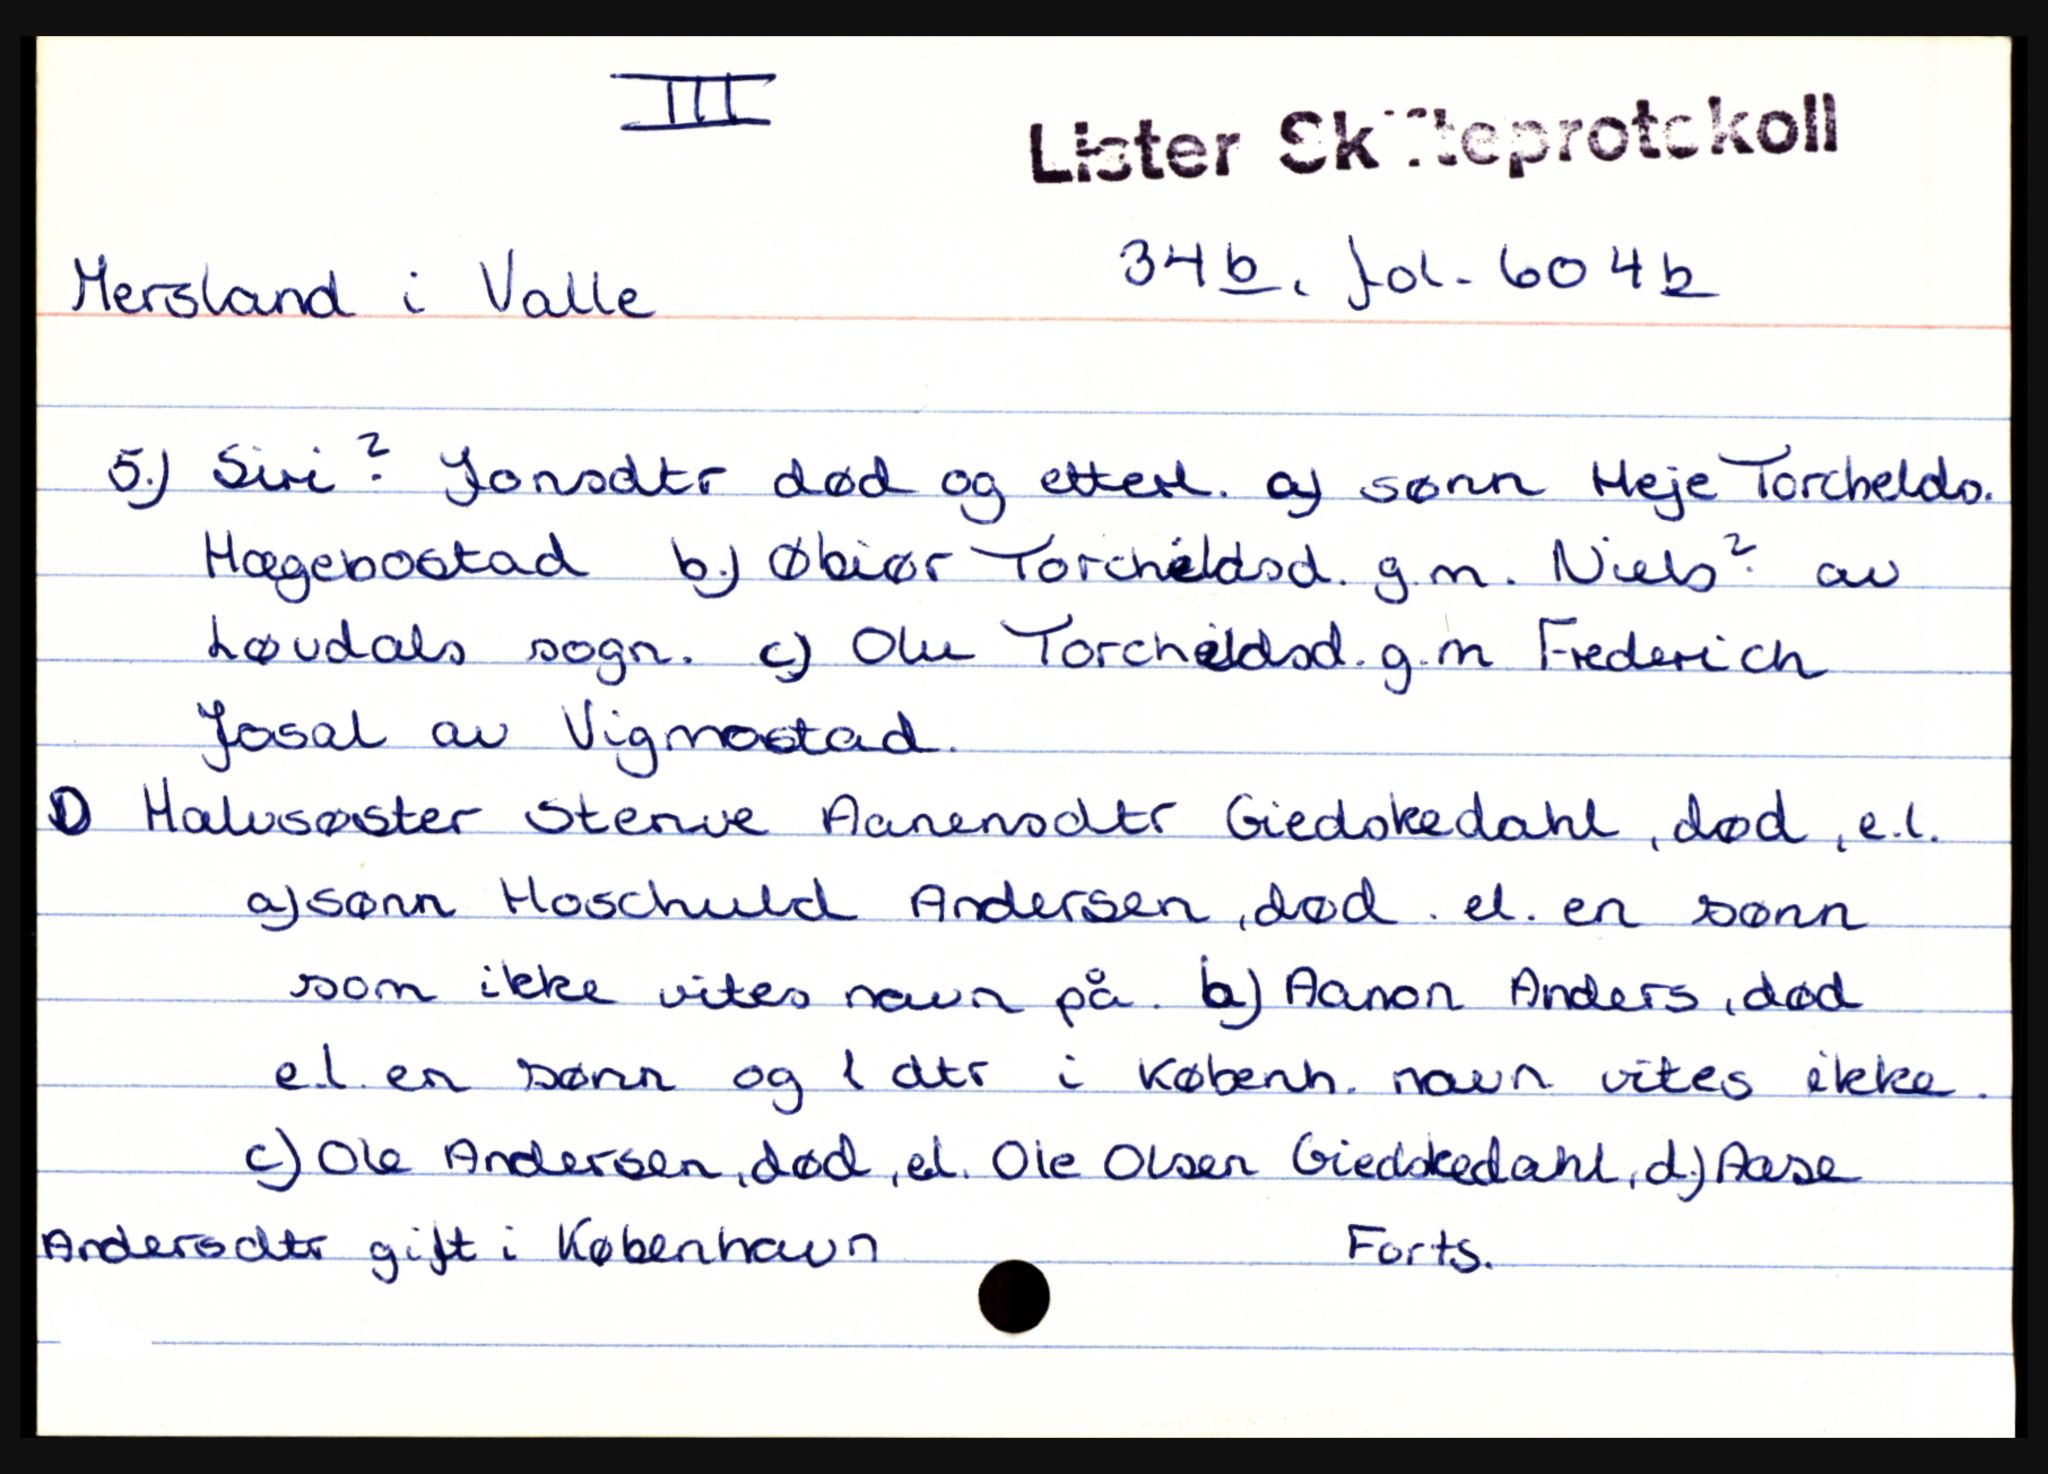 III
Lister Skifteprotokoll
Hersland i Valle
34b, fol. 604b
5.) Siri? Jonsdtr død og etterl. a) sønn Heje Torchelds.
Hægebostad b.) Øbiør Torcheldsd. g.m. Niels? av
Løvdals sogn. c) Olu Torcheldsd. g.m Frederich
Josal av Vigmostad.
D Halvsøster Stenve Aanensdtr Giedskedahl, død, e.l.
a) sønn Hoschuld Andersen, død. el. en sønn
som ikke vites navn på. b) Aanon Anders, død
e.l. en sønn og 1 dtr i Københ. navn vites ikke.
c) Ole Andersen, død, el. Ole Olsen Giedskedahl, d.) Aase
Andersdtr gift i København
Forts.